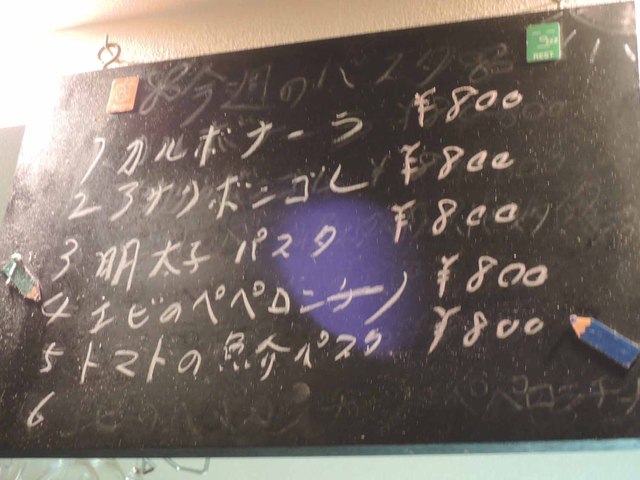 今週のパスタ
1 カルボナーラ ¥800
2 アサリボンゴレ ¥800
3 明太子 パスタ ¥800
4 エビのペペロンチーノ ¥800
5 トマトの魚介パスタ ¥800
6